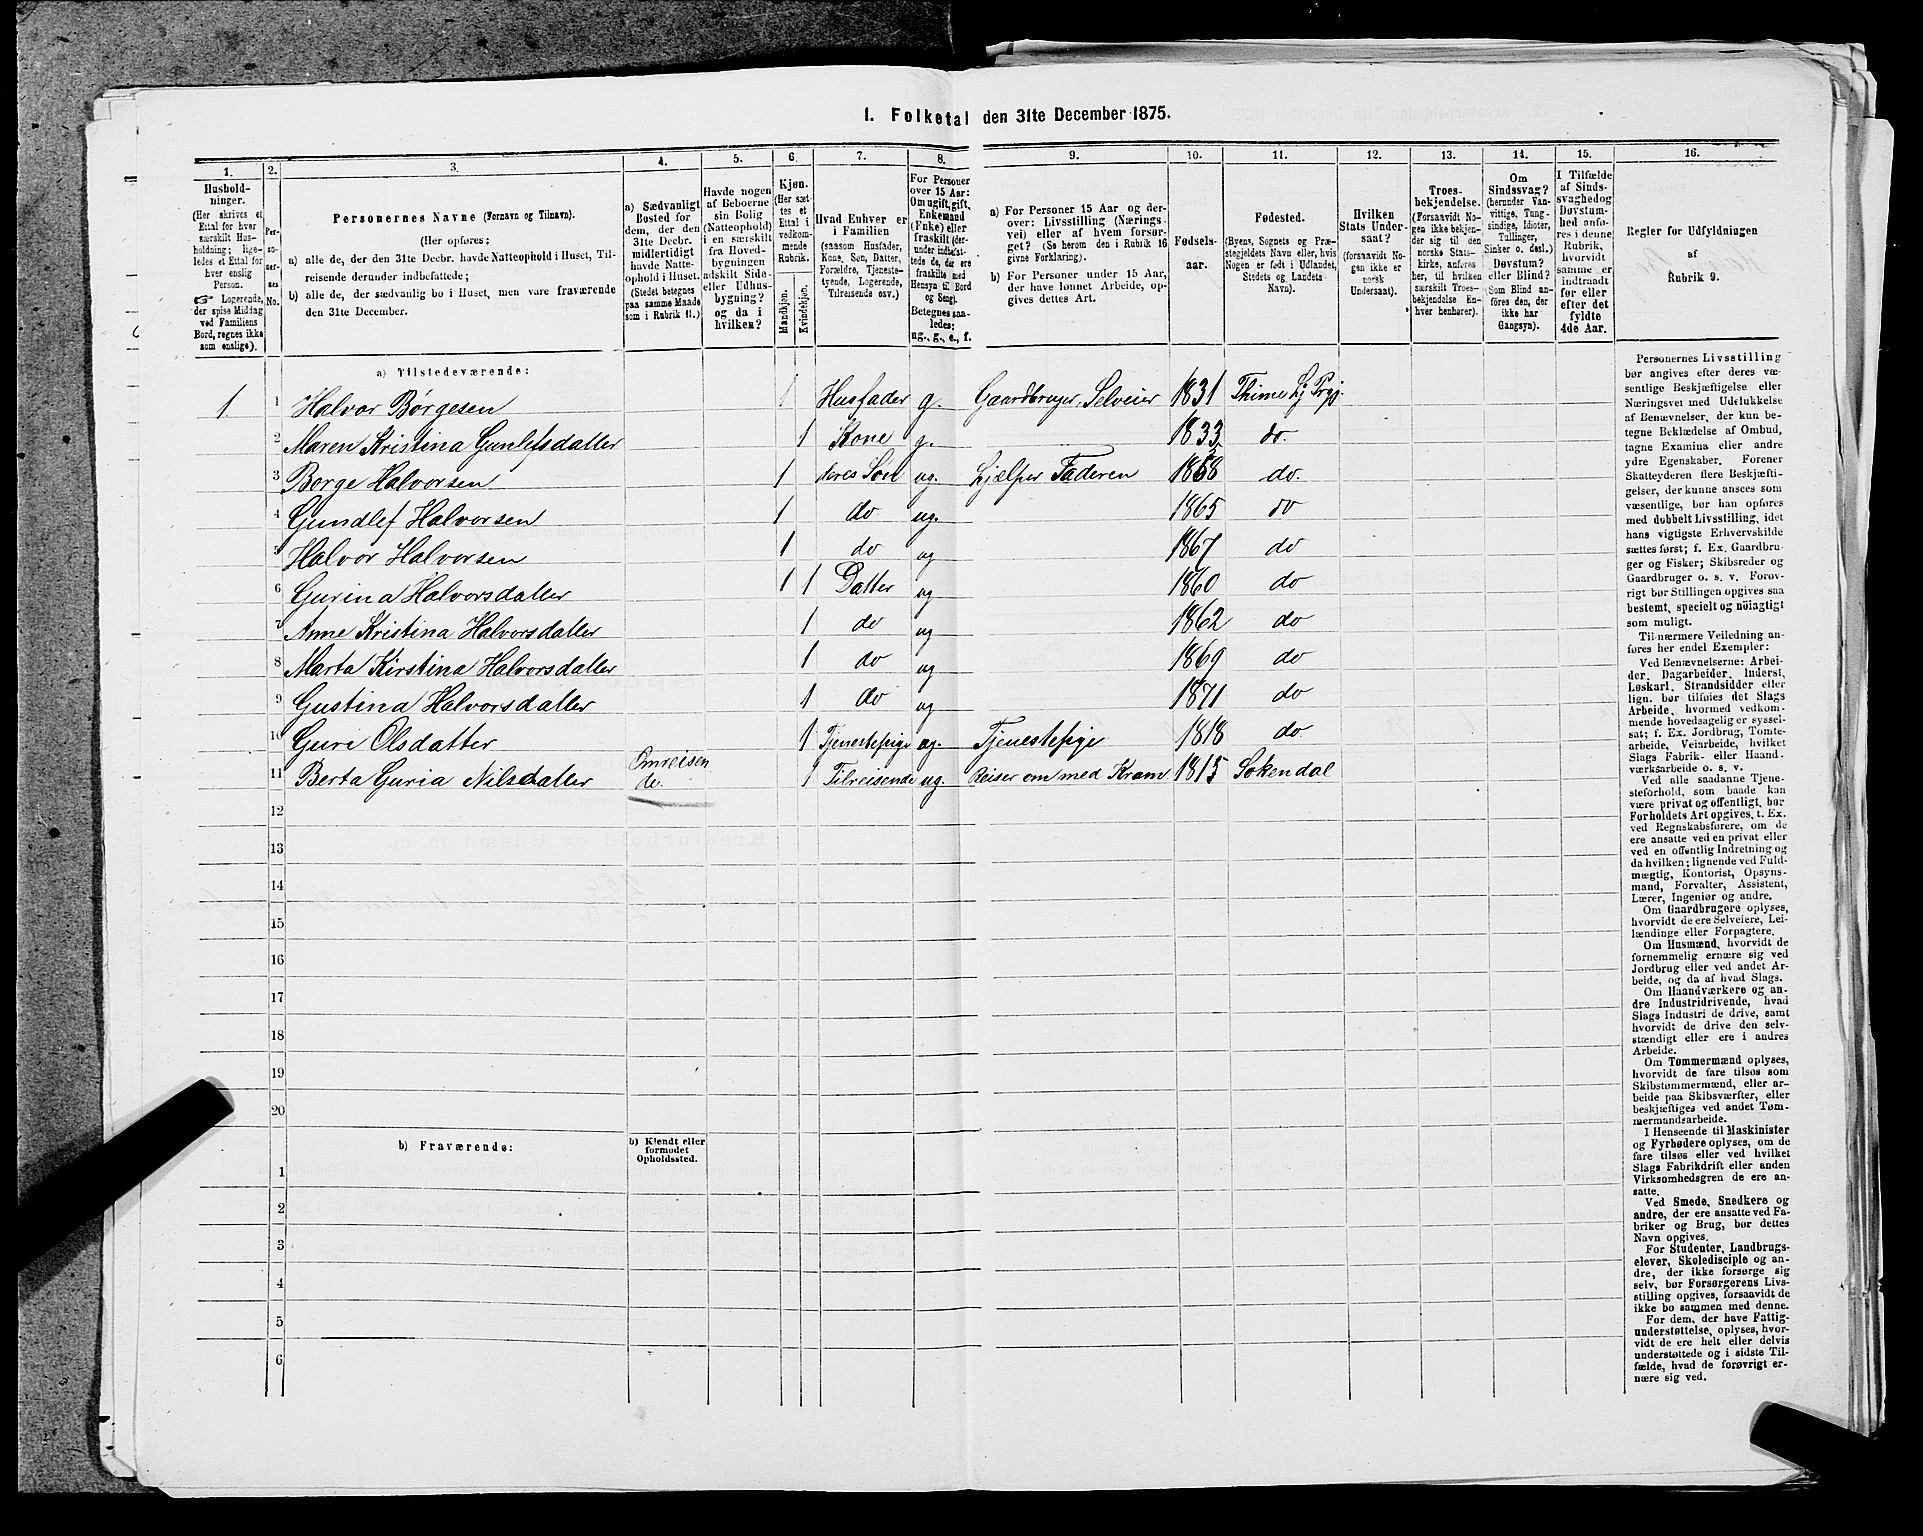 1. Folketal den 31te December 1875.
1. 2. 3. 4. 5. 6. 7. 8. 9. 10. 11. 12. 13. 14. 15. 16.
Hushold-
ninger.
(Her skrives et
Ettal for hver
særskilt Hus-
holdning; lige-
ledes et Ettal for
hver enslig
Person.
Logerende,
der spise Middag
ved Familiens
Bord, regnes ikke
som enslige).
Per-
so-
ner-
nes
No.
Personernes Navne (Fornavn og Tilnavn).
(Her opføres:
a) alle de, der den 31te Decbr. havde Natteophold i Huset, Til-
reisende derunder indbefattede;
b) alle de, der sædvanlig bo i Huset, men vare fraværende
den 31te December.
a) Sædvanligt
Bosted for
dem, der den
31te Decbr.
midlertidigt
havde Natte-
ophold i Huset.
(Stedet betegnes
paa samme Maade
som i Rubrik 11.)
Havde nogen
af Beboerne
sin Bolig
(Natteophold)
i en særskilt
fra Hoved-
bygningen
adskilt Side-
eller Udhus-
bygning?
og da i
hvilken?
Kjøn.
(Her sæt-
tes et
Ettal i
vedkom-
mende
Rubrik.
Mandkjøn.
Kvindekjøn.
Hvad Enhver er
i Familien
(saasom Husfader,
Kone, Søn, Datter,
Forældre, Tjeneste-
tyende, Logerende,
Tilreisende osv.)
For Personer
over 15 Aar:
Om ugift, gift,
Enkemand
(Enke) eller
fraskilt (der-
under indbefat-
tede de, der ere
fraskilte med
Hensyn til Bord
og Seng).
Betegnes saa-
ledes:
ug., g., e., f.
a) For Personer 15 Aar og der-
over: Livsstilling (Nærings-
vei) eller af hvem forsør-
get? (Se herom den i Rubrik 16
givne Forklaring).
b) For Personer under 15 Aar,
der have lønnet Arbeide, op-
gives dettes Art.
Fødsels-
aar.
Fødested.
(Byens, Sognets og Præ-
stegjeldets Navn eller, hvis
Nogen er født i Udlandet,
Stedets og Landets
Navn).
Hvilken
Stats Under-
saat?
(forsaavidt No-
gen ikke er
norsk
Undersaat).
Troes-
bekjendelse.
(Forsaavidt No-
gen ikke bekjen-
der sig til den
norske Stats-
kirke, anføres
her, til hvilken
særskilt Troes-
bekjendelse En-
hver henhører).
Om
Sindssvag?
(herunder Van-
vittige, Tung-
sindige, Idioter,
Tullinger,
Sinker o. desl.)
Døvstum?
eller Blind?
(Som Blind an-
føres den, der
ikke har
Gangsyn).
I Tilfælde
af Sinds-
svaghed og
Døvstum-
hed anfø-
res i denne
Rubrik,
hvorvidt
samme er
indtraadt
før eller
efter det
fyldte
4de Aar.
Regler for Udfyldningen
af
Rubrik 9.
a) Tilstedeværende:
1 1 Halvor Børgesen 1 Husfader g. Gaardbruger, Selveier 1831 Thime
2 Maren Kristina Gunlefsdatter 1 Kone g. 1833 do.
3 Børge Halvorsen 1 deres Søn ug. hjelper Faderen 1858 do.
4 Gundlef Halvorsen 1 do ug. 1865 do
5 Halvor Halvorsen 1 do ug 1867 do
6 Gurina Halvorsdatter 1 1 Datter ug 1860 do
7 Anne Kristina Halvorsdatter 1 do ug 1862 do
8 Marta Kirstina Halvorsdatter 1 do ug 1869 do
9 Gustina Halvorsdatter 1 do ug 1871 do
10 Guri Olsdatter 1 Tjenestepige ug. Tjenestepige 1818 do
11 Berta Guria Nilsdatter Omreisen
de. 1 Tilreisende ug. Reiser om med Kram 1815 Sokendal
12
13
14
15
16
17
18
19
20
b) Fraværende:
b) Kjendt eller
formodet
Opholdssted.
1
2
3
4
5
6
Personernes Livsstilling
bør angives efter deres væ-
sentlige Beskjæftigelse eller
Næringsvei med Udelukkelse
af Benævnelser, der kun be-
tegne Beklædelse af Ombud,
tagne Examina eller andre
ydre Egenskaber. Forener
Skatteyderen flere Beskjæfti-
gelser, der kunne ansees som
væsentlige, bør han opføres
med dobbelt Livsstilling, idet
hans vigtigste Erhvervskilde
sættes først; f. Ex. Gaardbru-
ger og Fisker; Skibsreder og
Gaardbruger o. s. v. Forøv-
rigt bør Stillingen opgives saa
bestemt, specielt og nöiagtigt
som muligt.
Til nærmere Veiledning an-
føres her endel Exempler:
Ved Benævnelserne: Arbei-
der, Dagarbeider, Inderst,
Løskarl, Strandsidder eller
lign. bør tilføies det Slags
Arbeide, hvormed vedkom-
mende hovedsagelig er syssel-
sat; f. Ex. Jordbrug, Tomte-
arbeide, Veiarbeide, hvilket
Slags Fabrik- eller Haand-
værksarbeide o. s. v.
Ved alle saadanne Tjene-
steforhold, som baade kan
være privat og offentligt, bør
Forholdets Art opgives, t. Ex.
ved Regnskabsførere, om de
ere ansatte ved en privat eller
ved en offentlig Indretning og
da hvilken; lignende ved Fuld-
mægtig, Kontorist, Opsyns-
mand, Forvalter, Assistent,
Lærer, Ingeniør og andre.
Om Gaardbrugere oplyses,
hvorvidt de ere Selveiere, Lei-
lændinge eller Forpagtere.
Om Husmænd, hvorvidt de
fornemmelig ernære sig ved
Jordbrug eller ved andet Ar-
beide, og da af hvad Slags.
Om Haandværkere og an-
dre Industridrivende, hvad
Slags Industri de drive, samt
hvorvidt de drive den selv-
stændigt eller ere i andres
Arbeide.
Om Tømmermænd oplyses,
hvorvidt de fare tilsøs som
Skibstømmermænd, eller ar-
beide paa Skibsværfter, eller
beskjæftiges ved andet Tøm-
mermandsarbeide.
I Henseende til Maskinister
og Fyrbødere oplyses, om de
fare tilsøs eller ved hvilket
Slags Fabrikdrift eller anden
Virksomhedsgren de ere an-
satte.
Ved Smede, Snedkere og
andre, der ere ansatte ved Fa-
briker og Brug, bør dettes
Navn opgives.
For Studenter, Landbrugs-
elever, Skoledisciple og an-
dre, der ikke forsørge sig
selv, bør Forsørgerens Livs-
stilling opgives, forsaavidt de
ikke bo sammen med denne.
For dem, der have Fattig-
understøttelse, oplyses, hvor-
vidt de ere helt eller delvis
understøttede og i sidste Til-
fælde, hvad de forøvrigt er-
nære sig ved.